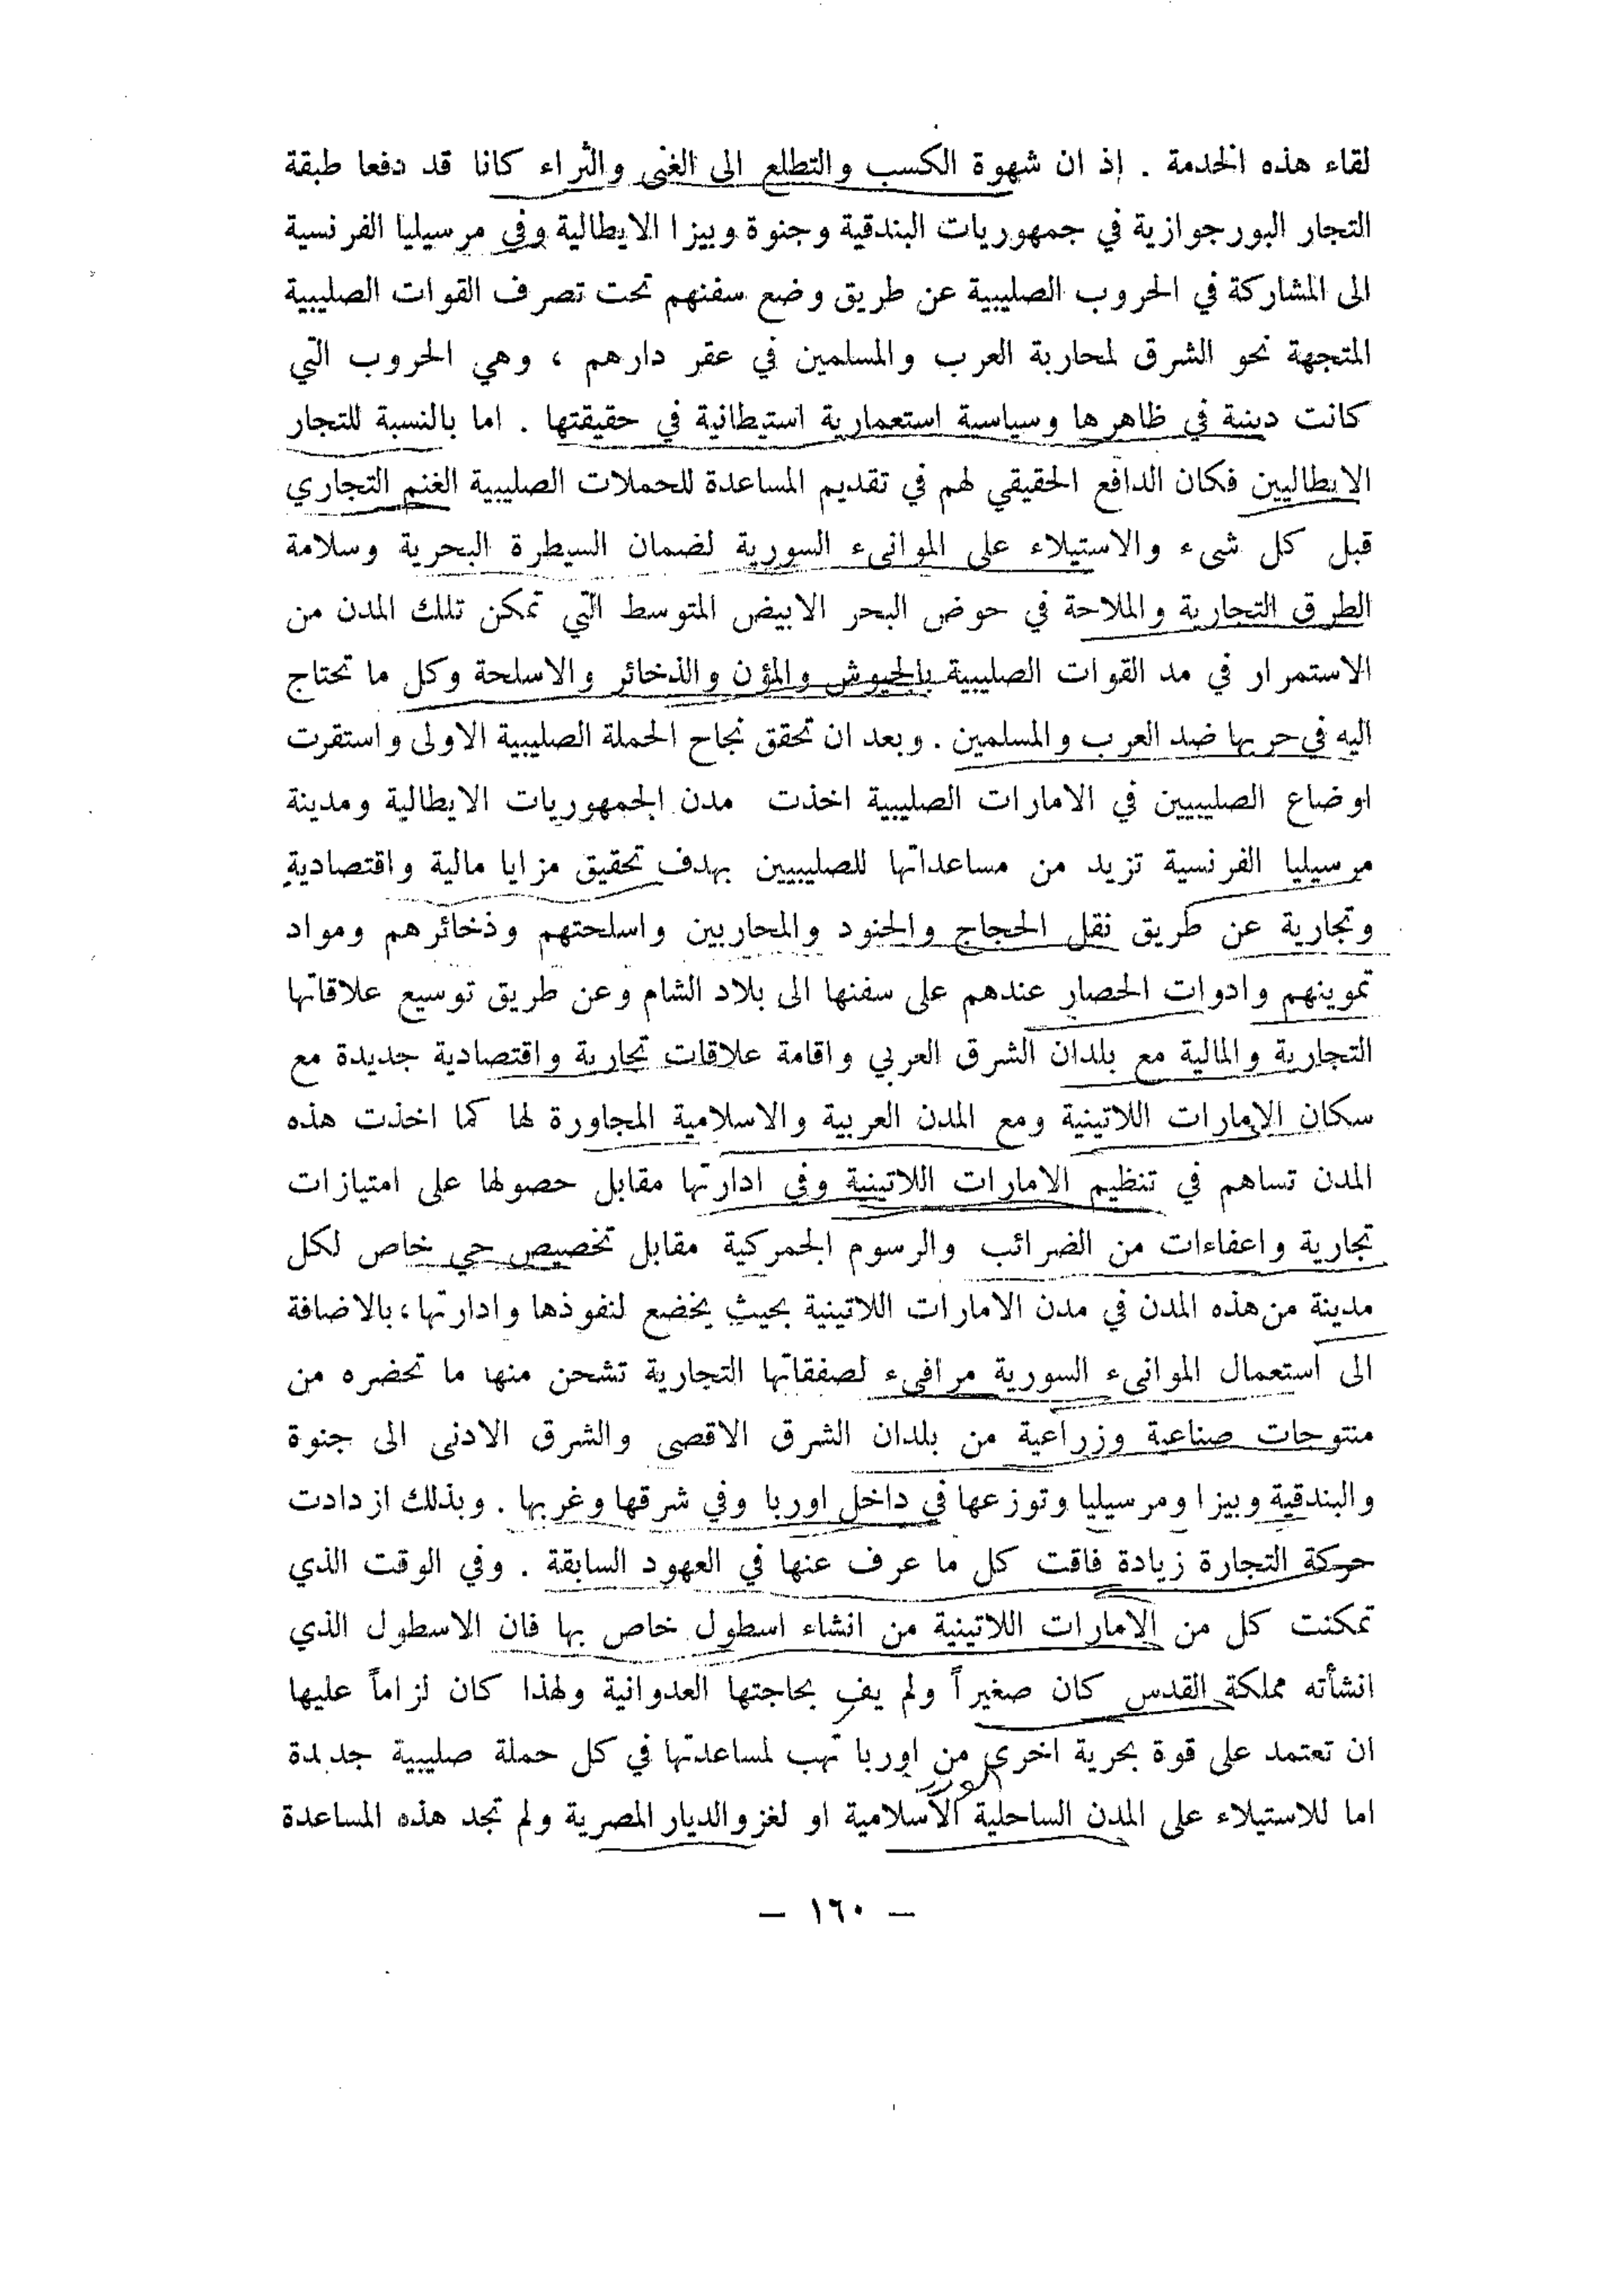 لقاء هذه الخدمة . إذ ان شهوة الكسب والتطلع الى الغنى والثراء كانا قد دفعا طبقة
التجار البورجوازية في جمهوريات البندقية وجنوة وبيزا الايطالية وفي مرسيليا الفرنسية
الى المشاركة في الحروب الصليبية عن طريق وضع سفنهم تحت تصرف القوات الصليبية
المتجهة نحو الشرق لمحاربة العرب والمسلمين في عقر دارهم ، وهي الحروب التي
كانت دينية في ظاهرها وسياسية استعمارية استيطانية في حقيقتها . اما بالنسبة للتجار
الايطاليين فكان الدافع الحقيقي لهم في تقديم المساعدة للحملات الصليبية الغنم التجاري
قبل كل شيء والاستيلاء على الموانىء السورية لضمان السيطرة البحرية وسلامة
الطرق التجارية والملاحة في حوض البحر الابيض المتوسط التي تمكن تلك المدن من
الاستمرار في مد القوات الصليبية بالجيوش والمؤن والذخائر والاسلحة وكل ما تحتاج
اليه في حربها ضد العرب والمسلمين . وبعد ان تحقق نجاح الحملة الصليبية الاولى واستقرت
اوضاع الصليبيين في الامارات الصليبية اخذت مدن الجمهوريات الايطالية ومدينة
مرسيليا الفرنسية تزيد من مساعداتها للصليبيين بهدف تحقيق مزايا مالية واقتصادية
وتجارية عن طريق نقل الحجاج والجنود والمحاربين واسلحتهم وذخائرهم ومواد
تموينهم وادوات الحصار عندهم على سفنها الى بلاد الشام وعن طريق توسيع علاقاتها
التجارية والمالية مع بلدان الشرق العربي واقامة علاقات تجارية واقتصادية جديدة مع
سكان الامارات اللاتينية ومع المدن العربية والاسلامية المجاورة لها كما اخذت هذه
المدن تساهم في تنظيم الامارات اللاتينية وفي ادارتها مقابل حصولها على امتيازات
تجارية واعفاءات من الضرائب والرسوم الجمركية مقابل تخصيص حي خاص لكل
مدينة من هذه المدن في مدن الامارات اللاتينية بحيث يخضع لنفوذها وادارتها ، بالاضافة
الى استعمال الموانىء السورية مرافىء لصفقاتها التجارية تشحن منها ما تحضره من
منتوجات صناعية وزراعية من بلدان الشرق الاقصى والشرق الادنى الى جنوة
والبندقية وبيزا ومرسيليا وتوزعها في داخل اوربا وفي شرقها وغربها . وبذلك ازدادت
حركة التجارة زيادة فاقت كل ما عرف عنها في العهود السابقة . وفي الوقت الذي
تمكنت كل من الامارات اللاتينية من انشاء اسطول خاص بها فان الاسطول الذي
انشأته مملكة القدس كان صغيراً ولم يف بحاجتها العدوانية ولهذا كان لزاماً عليها
ان تعتمد على قوة بحرية اخرى من اوربا تهب لمساعدتها في كل حملة صليبية جديدة
اما للاستيلاء على المدن الساحلية الاسلامية او لغزو الديار المصرية ولم تجد هذه المساعدة
— ١٦٠ —